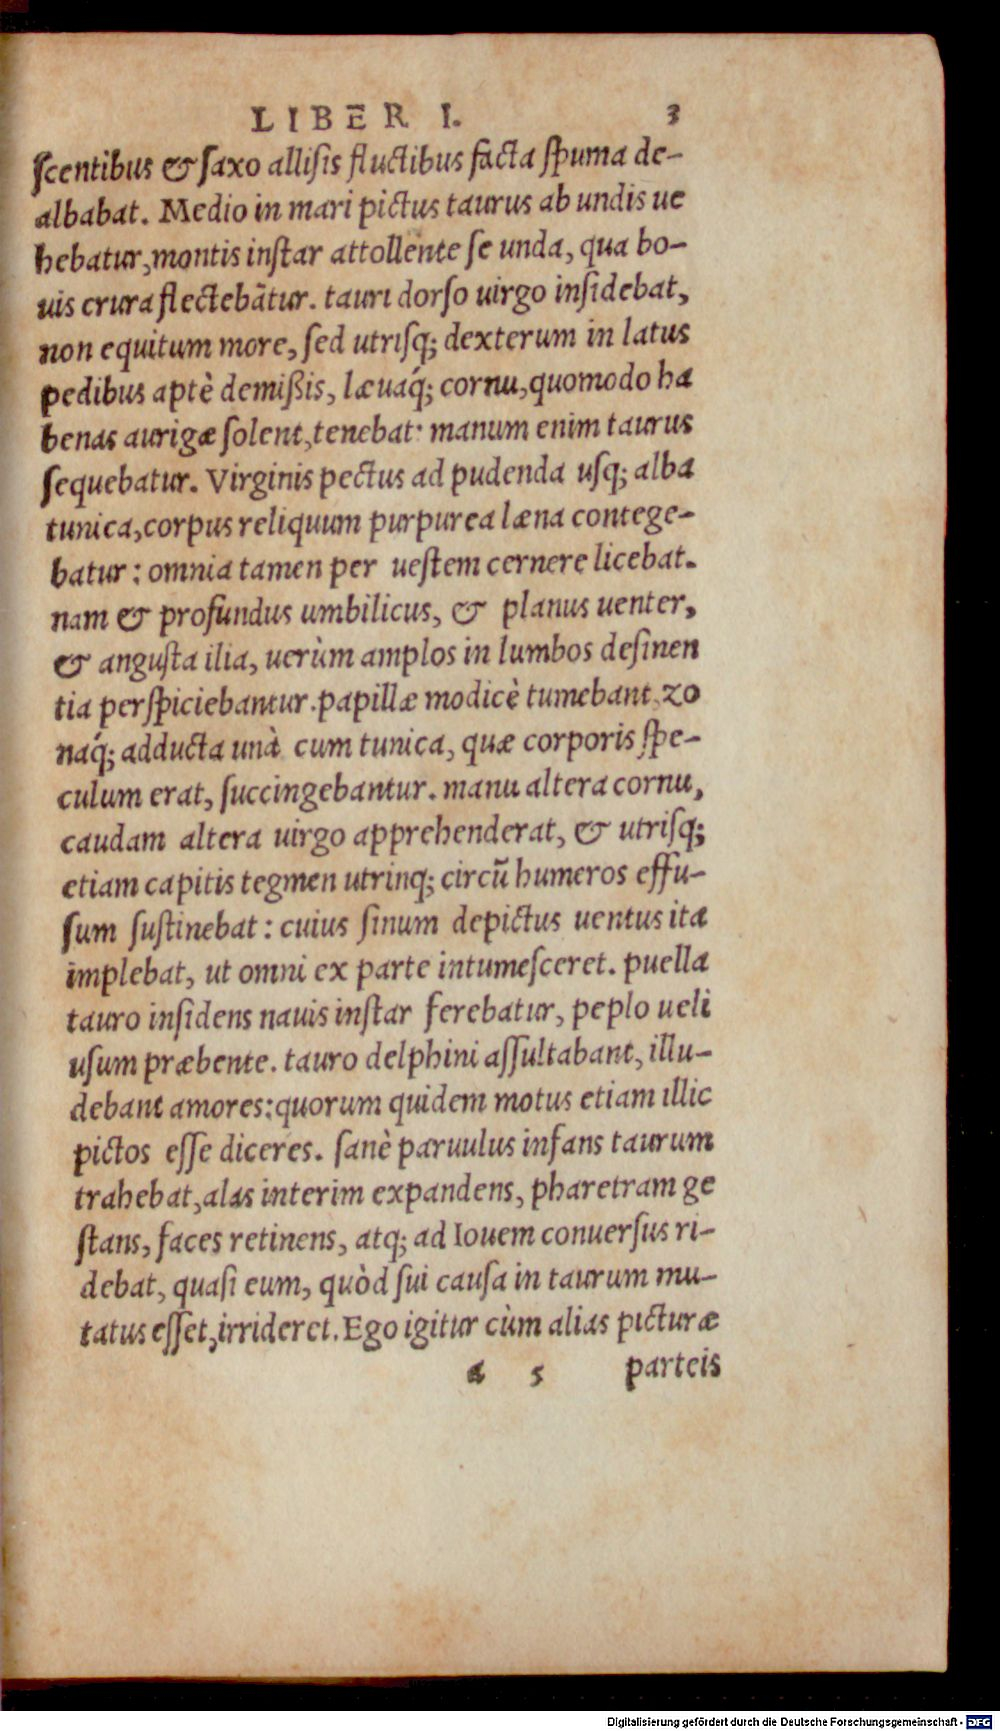 LIBER I. 3
ſcentibus & ſaxo alliſis fluctibus facta ſpuma de-
albabat. Medio in mari pictus taurus ab undis ue
hebatur, montis inſtar attollente ſe unda, qua bo-
uis crura flectebātur. tauri dorſo uirgo inſidebat,
non equitum more, ſed utriſq; dexterum in latus
pedibus aptè demißis, læuaq́; cornu, quomodo ha
benas aurigæ ſolent, tenebat: manum enim taurus
ſequebatur. Virginis pectus ad pudenda uſq; alba
tunica, corpus reliquum purpurea læna contege-
batur: omnia tamen per ueſtem cernere licebat.
nam & profundus umbilicus, & planus uenter,
& anguſta ilia, uerùm amplos in lumbos deſinen
tia perſpiciebantur. papillæ modicè tumebant, zo
naq́; adducta unà cum tunica, quæ corporis ſpe-
culum erat, ſuccingebantur. manu altera cornu,
caudam altera uirgo apprehenderat, & utriſq;
etiam capitis tegmen utrinq; circū humeros effu-
ſum ſuſtinebat: cuius ſinum depictus uentus ita
implebat, ut omni ex parte intumeſceret. puella
tauro inſidens nauis inſtar ferebatur, peplo ueli
uſum præbente. tauro delphini aſſultabant, illu-
debant amores: quorum quidem motus etiam illic
pictos eſſe diceres. ſanè paruulus infans taurum
trahebat, alas interim expandens, pharetram ge
ſtans, faces retinens, atq; ad Iouem conuerſus ri-
debat, quaſi eum, quòd ſui cauſa in taurum mu-
tatus eſſet, irrideret. Ego igitur cùm alias picturæ
a 5 parteis
Digitalisierung gefördert durch die Deutsche Forschungsgemeinschaft - DFG